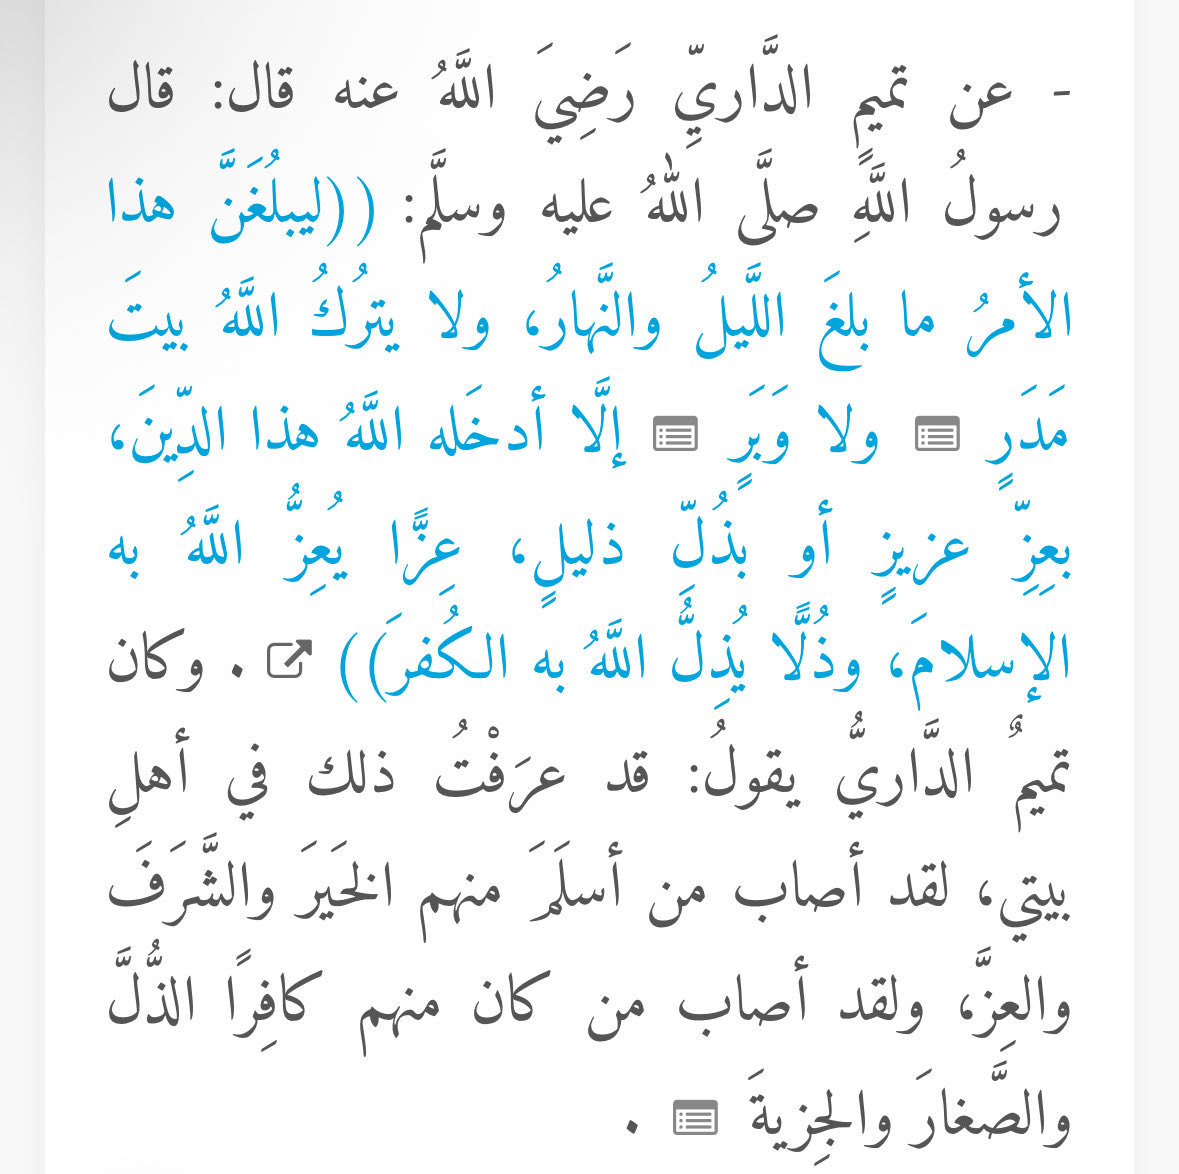 - عن تميمٍ الدَّاريِّ رَضِيَ اللَّهُ عنه قال: قال
رسولُ اللَّهِ صلَّى اللهُ عليه وسلَّم: ((ليبلُغَنَّ هذا
الأمرُ ما بلغَ اللَّيلُ والنَّهارُ، ولا يترُكُ اللَّهُ بيتَ
مَدَرٍ ولا وَبَرٍ إلَّا أدخَله اللَّهُ هذا الدِّينَ،
بعِزِّ عزيزٍ أو بذُلِّ ذليلٍ، عِزًّا يُعِزُّ اللَّهُ به
الإسلامَ، وذُلًّا يُذِلُّ اللَّهُ به الكُفرَ)) . وكان
تميمٌ الدَّاريُّ يقولُ: قد عرَفْتُ ذلك في أهلِ
بيتي، لقد أصاب من أسلَمَ منهم الخَيرَ والشَّرَفَ
والعِزَّ، ولقد أصاب من كان منهم كافِرًا الذُّلَّ
والصَّغارَ والجِزيةَ .